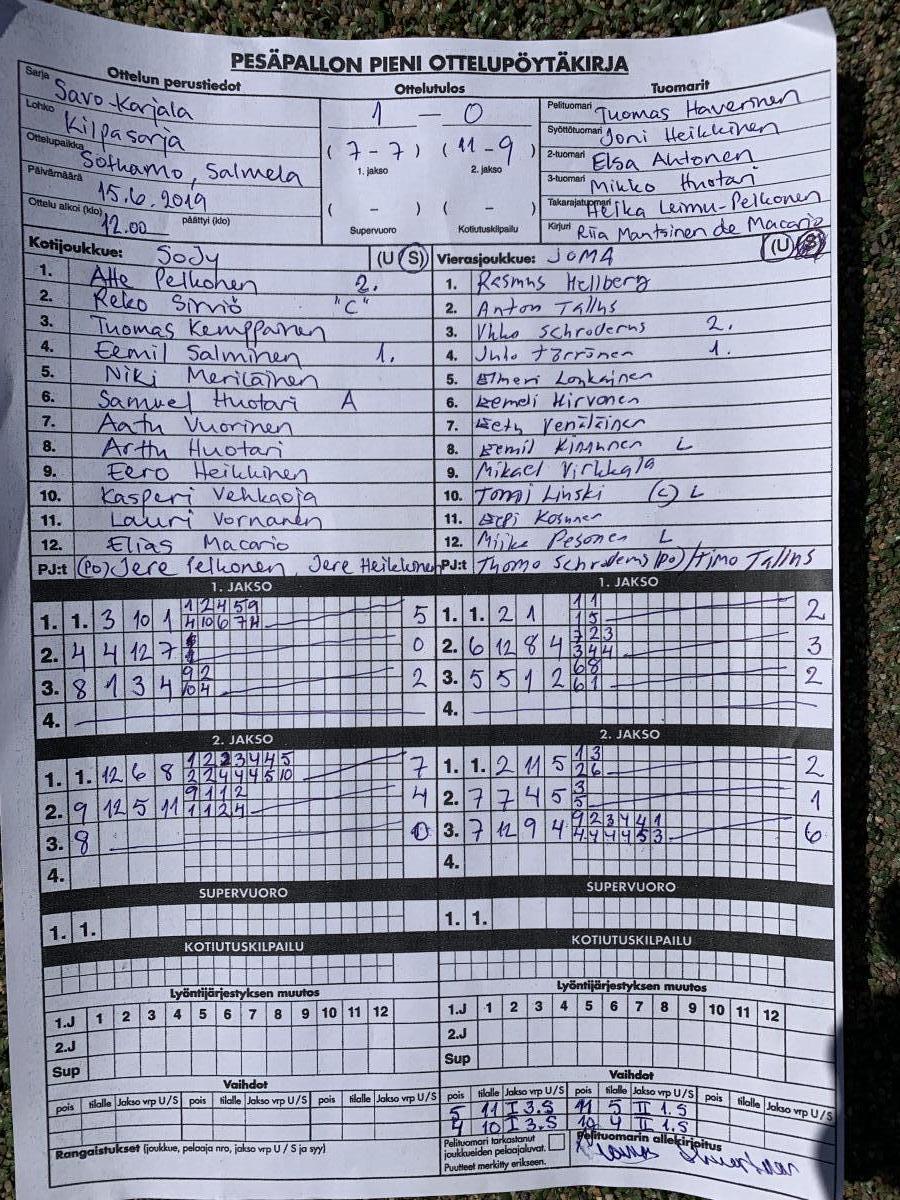 PESÄPALLON PIENI OTTELUPÖYTÄKIRJA
Ottelun perustiedot
Sarja Savo-Karjala
Lohko Kilpasarja
Ottelupaikka Sotkamo, Salmela
Päivämäärä 15.6.2019
Ottelu alkoi (klo) 12.00 päättyi (klo)
Ottelutulos
1 - 0
(7-7) (11-9)
1. jakso 2. jakso
( - ) ( - )
Supervuoro Kotiutuskilpailu
Tuomarit
Pelituomari Tuomas Haverinen
Syöttötuomari Joni Heikkinen
2-tuomari Elsa Ahtonen
3-tuomari Mikko Huotari
Takarajatuomari Heika Leimu-Pelkonen
Kirjuri Riia Mantsinen de Macario
Kotijoukkue: SoJy (U S)
1. Atte Pelkonen 2.
2. Reko Sirviö "C"
3. Tuomas Kemppainen
4. Eemil Salminen 1.
5. Niki Meriläinen
6. Samuel Huotari A
7. Aatu Vuorinen
8. Arttu Huotari
9. Eero Heikkinen
10. Kasperi Vehkaoja
11. Lauri Vornanen
12. Elias Macario
PJ:t (Po) Jere Pelkonen, Jere Heikkinen
Vierasjoukkue: JoMA (U S)
1. Rasmus Hellberg
2. Anton Tallus
3. Ukko Schroderus 2.
4. Juho Törrönen 1.
5. Elmeri Lonkainen
6. Eemeli Hirvonen
7. Eetu Venäläinen
8. Eemil Kinnunen L
9. Mikael Virkkala
10. Tomi Linski (c) L
11. Kosunen
12. Miika Pesonen L
PJ:t Thomo Schroderus (po)/Timo Tallus
1. JAKSO
1. 1. 3 10 1 1 2 4 5 9 5
4 10 6 7 4
2. 4 4 12 7 0
3. 8 1 3 4 9 2 2
10 4
4.
2. JAKSO
1. 1. 12 6 8 1 2 2 3 4 4 5 7
2 2 4 4 4 5 10
2. 9 12 5 11 9 1 1 2 4
1 1 2 4
3. 8 0
4.
SUPERVUORO
1. 1.
KOTIUTUSKILPAILU
Lyöntijärjestyksen muutos
1.J 1 2 3 4 5 6 7 8 9 10 11 12
2.J
Sup
Vaihdot
pois tilalle Jakso vrp U/S pois tilalle Jakso vrp U/S pois tilalle Jakso vrp U/S
Rangaistukset (joukkue, pelaaja nro, jakso vrp U / S ja syy)
1. JAKSO
1. 1. 2 1 1 1 2
1 5
2. 6 12 8 4 7 2 3 3
3 4 4
3. 5 5 1 2 6 8 2
6 1
4.
2. JAKSO
1. 1. 2 11 5 1 3 2
2 6
2. 7 7 4 5 3 1
5
3. 7 12 9 4 9 2 3 4 4 1 6
4 4 4 4 5 3
4.
SUPERVUORO
1. 1.
KOTIUTUSKILPAILU
Lyöntijärjestyksen muutos
1.J 1 2 3 4 5 6 7 8 9 10 11 12
2.J
Sup
Vaihdot
pois tilalle Jakso vrp U/S pois tilalle Jakso vrp U/S pois tilalle Jakso vrp U/S
5 11 I 3.S 11 5 II 1.S
4 10 I 3.S 10 4 II 1.S
Pelituomari tarkastanut
joukkueiden pelaajaluvat.
Puutteet merkitty erikseen.
Pelituomarin allekirjoitus